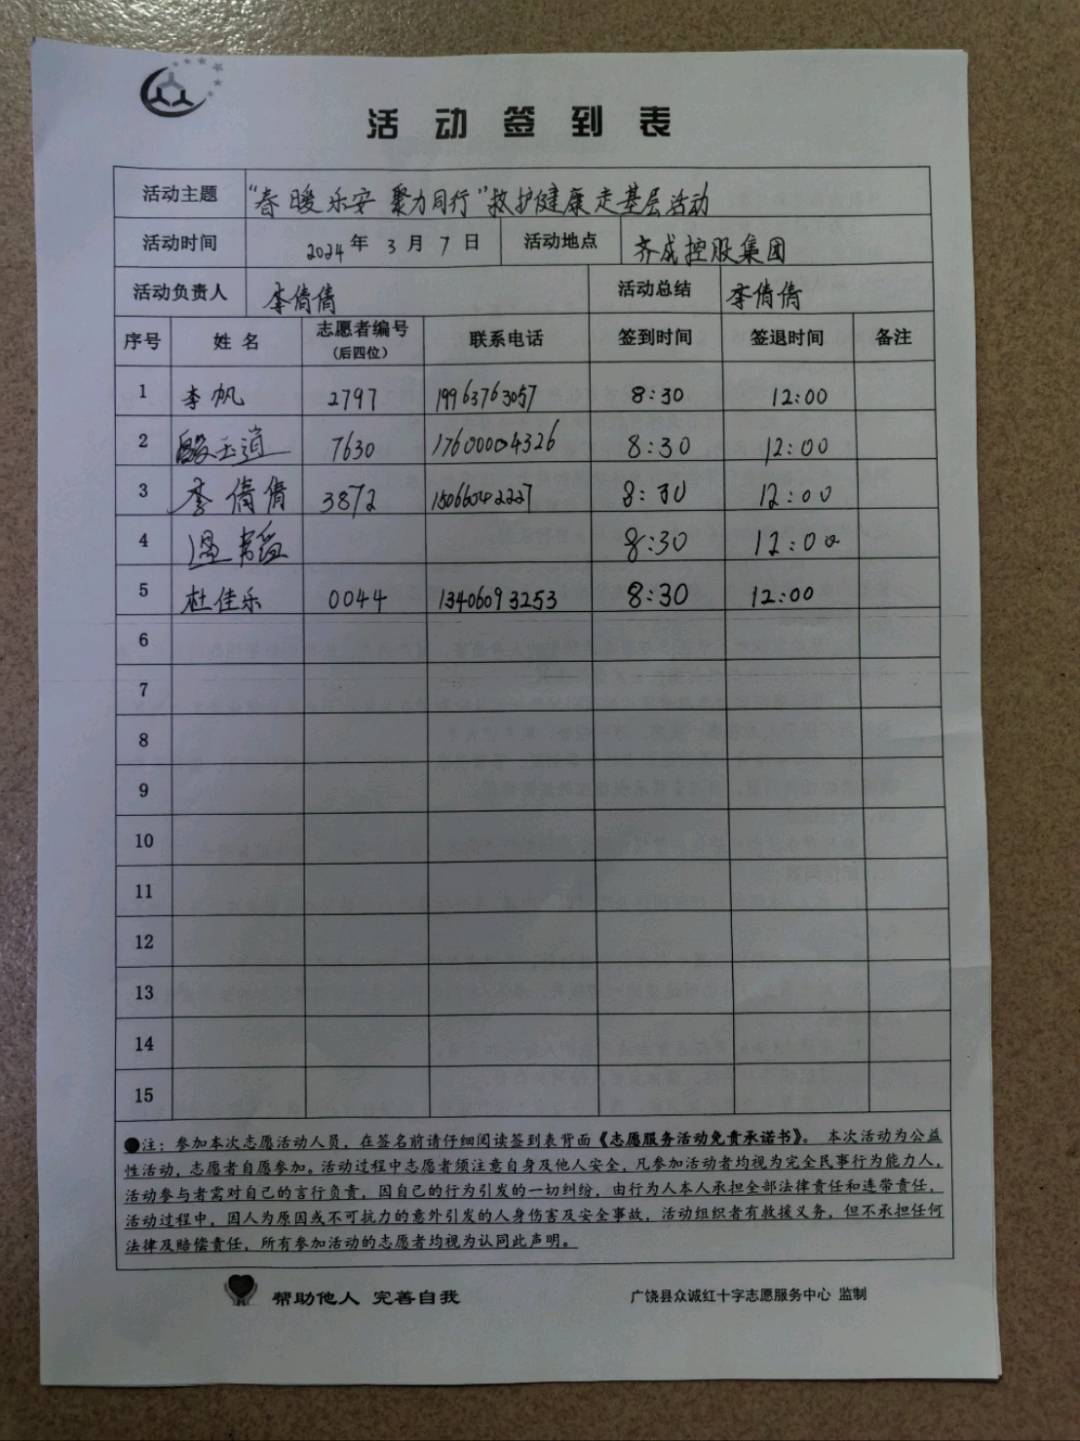 活动签到表
活动主题 “春暖乐安 聚力同行”救护健康走基层活动
活动时间 2024年3月7日 活动地点 齐成控股集团
活动负责人 李倩倩 活动总结 李倩倩
序号 姓名 志愿者编号 (后四位) 联系电话 签到时间 签退时间 备注
1 李帆 2797 19963763057 8:30 12:00
2 殷玉道 7630 17600004326 8:30 12:00
3 李倩倩 3872 15066042227 8:30 12:00
4 温 8:30 12:00
5 杜佳乐 0044 13406093253 8:30 12:00
6
7
8
9
10
11
12
13
14
15
●注：参加本次志愿活动人员，在签名前请仔细阅读签到表背面《志愿服务活动免责承诺书》。本次活动为公益
性活动，志愿者自愿参加。活动过程中志愿者须注意自身及他人安全，凡参加活动者均视为完全民事行为能力人，
活动参与者需对自己的言行负责，因自己的行为引发的一切纠纷，由行为人本人承担全部法律责任和连带责任，
活动过程中，因人为原因或不可抗力的意外引发的人身伤害及安全事故，活动组织者有救援义务，但不承担任何
法律及赔偿责任，所有参加活动的志愿者均视为认同此声明。
帮助他人 完善自我 广饶县众诚红十字志愿服务中心 监制